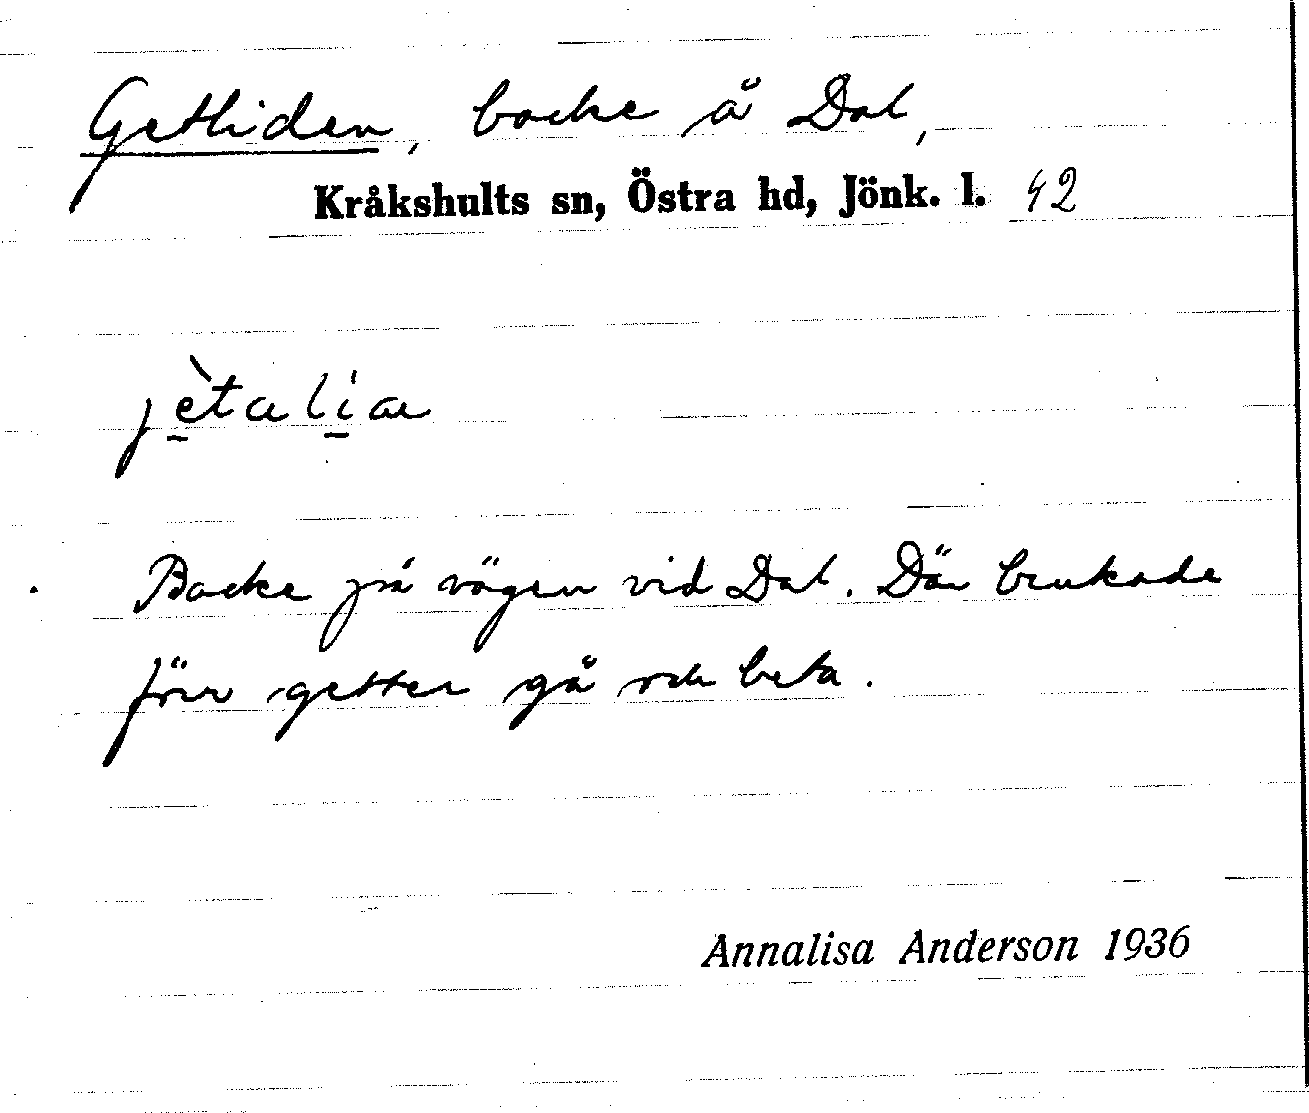 Getliden, backe å Dal,
Kråkshults sn, Östra hd, Jönk. l. 42
jètalia
Backe på vägen vid Dal. Där brukade
förr getter gå och beta.
Annalisa Anderson 1936